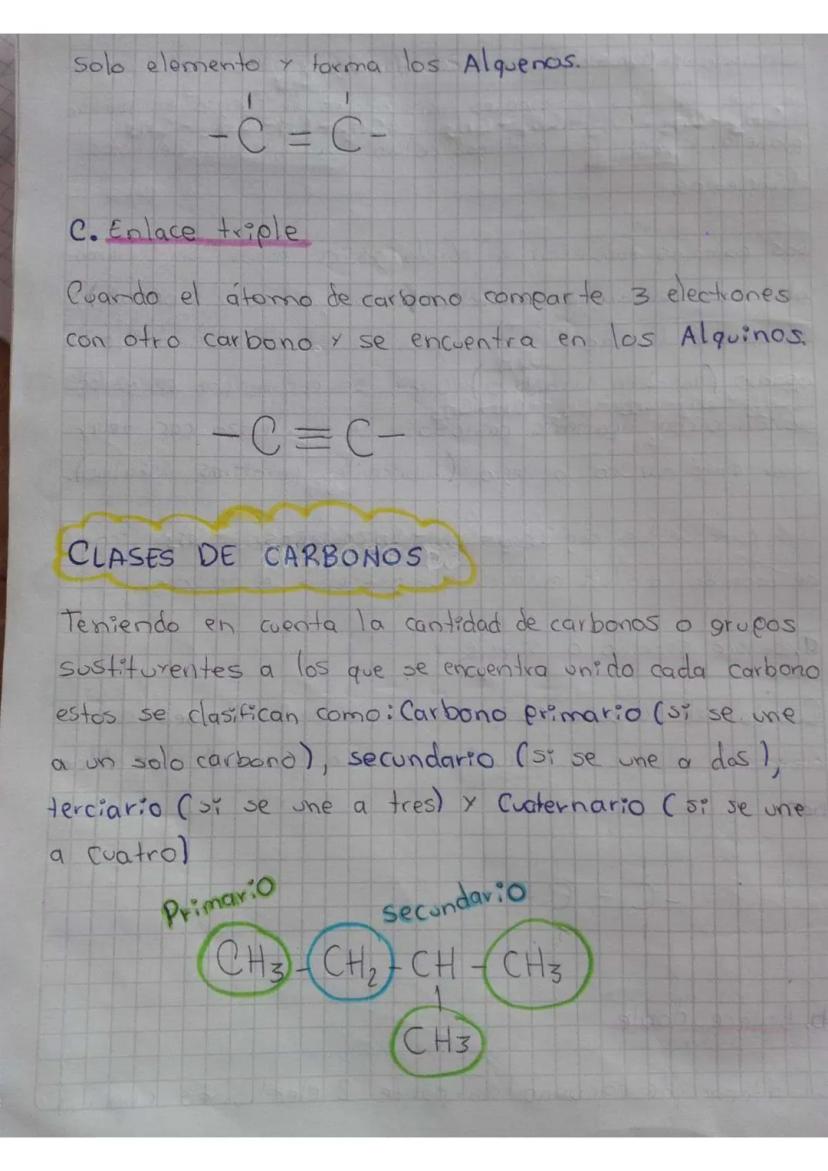 Solo elemento y forma los Alquenos.
-C=C-
C. Enlace triple
Cuando el átomo de carbono comparte 3 electrones
con otro carbono y se encuentra en los Alquinos.
-C≡C-
CLASES DE CARBONOS
Teniendo en cuenta la cantidad de carbonos o grupos
sustituyentes a los que se encuentra unido cada carbono
estos se clasifican como: Carbono primario (si se une
a un solo carbono), secundario (si se une a dos),
terciario (si se une a tres) y Cuaternario (si se une
a cuatro)
Primario secundario
CH3-CH2-CH-CH3
CH3